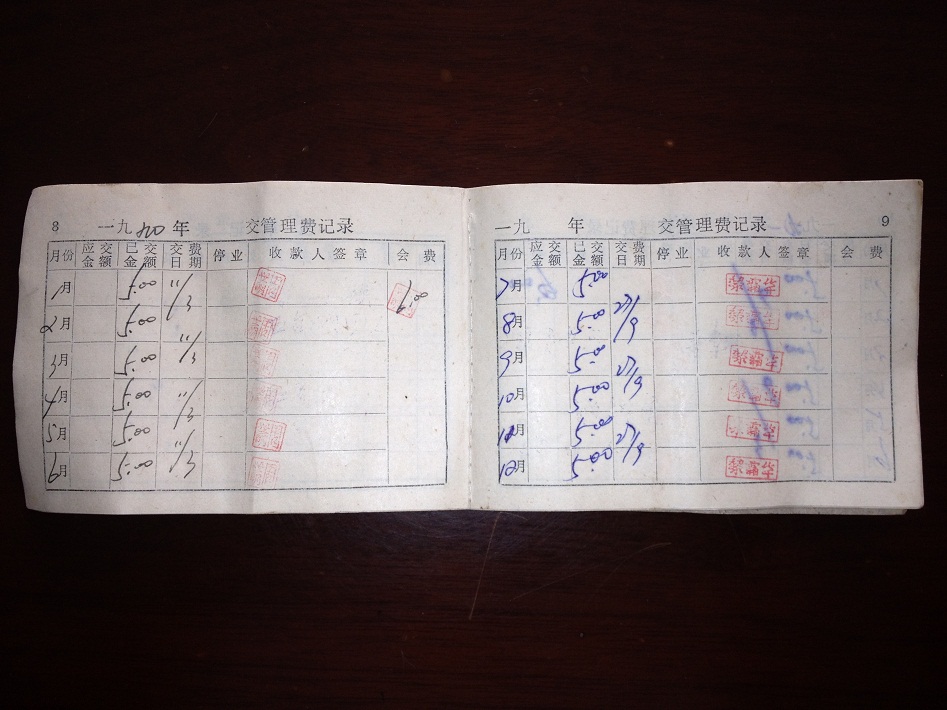 8 一九90年 交管理费记录
月份 应交金额 已交金额 交费日期 停业 收款人签章 会费
1月 5.00 11/3
2月 5.00
3月 5.00 11/3
4月 5.00 11/3
5月 5.00 11/3
6月 5.00
一九 年 交管理费记录 9
月份 应交金额 已交金额 交费日期 停业 收款人签章 会费
7月 5.00
8月 5.00 27/9
9月 5.00
10月 5.00 27/9
11月 5.00
12月 5.00 27/9